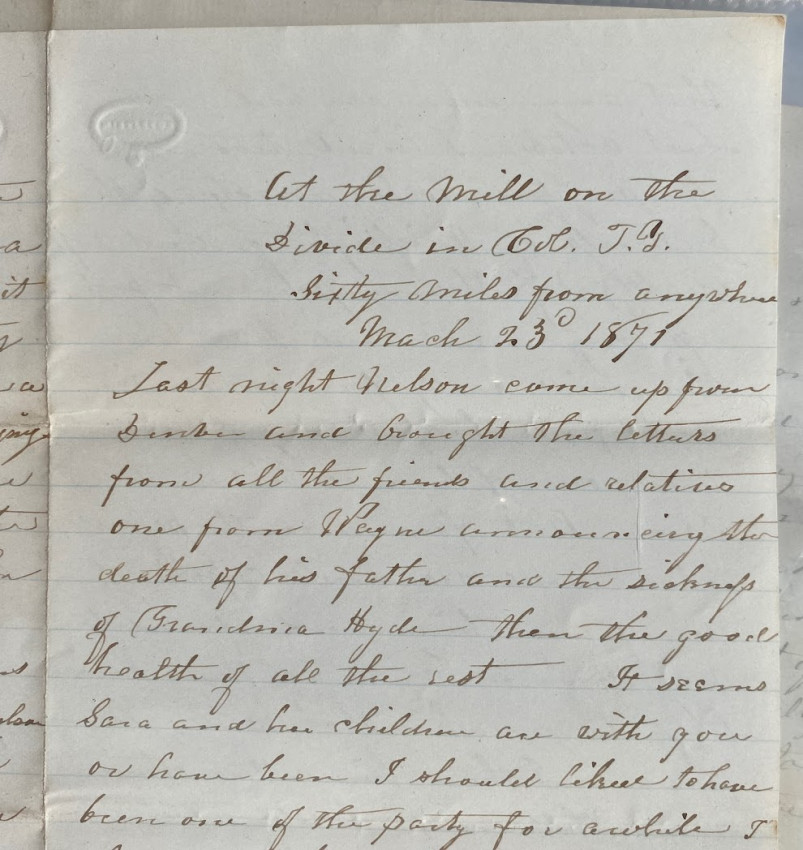 At the Mill on the
Divide in Col. T.Y.
Sixty Miles from anywhere
Mach 23d 1871
Last night Nelson come up from
Denver and brought the letters
from all the friends and relatives
one from Wayne announcing the
death of his father and the sickness
of Grandma Hyde then the good
health of all the rest It seems
Sara and her children are with you
or have been I should liked to have
been one of the party for awhile I